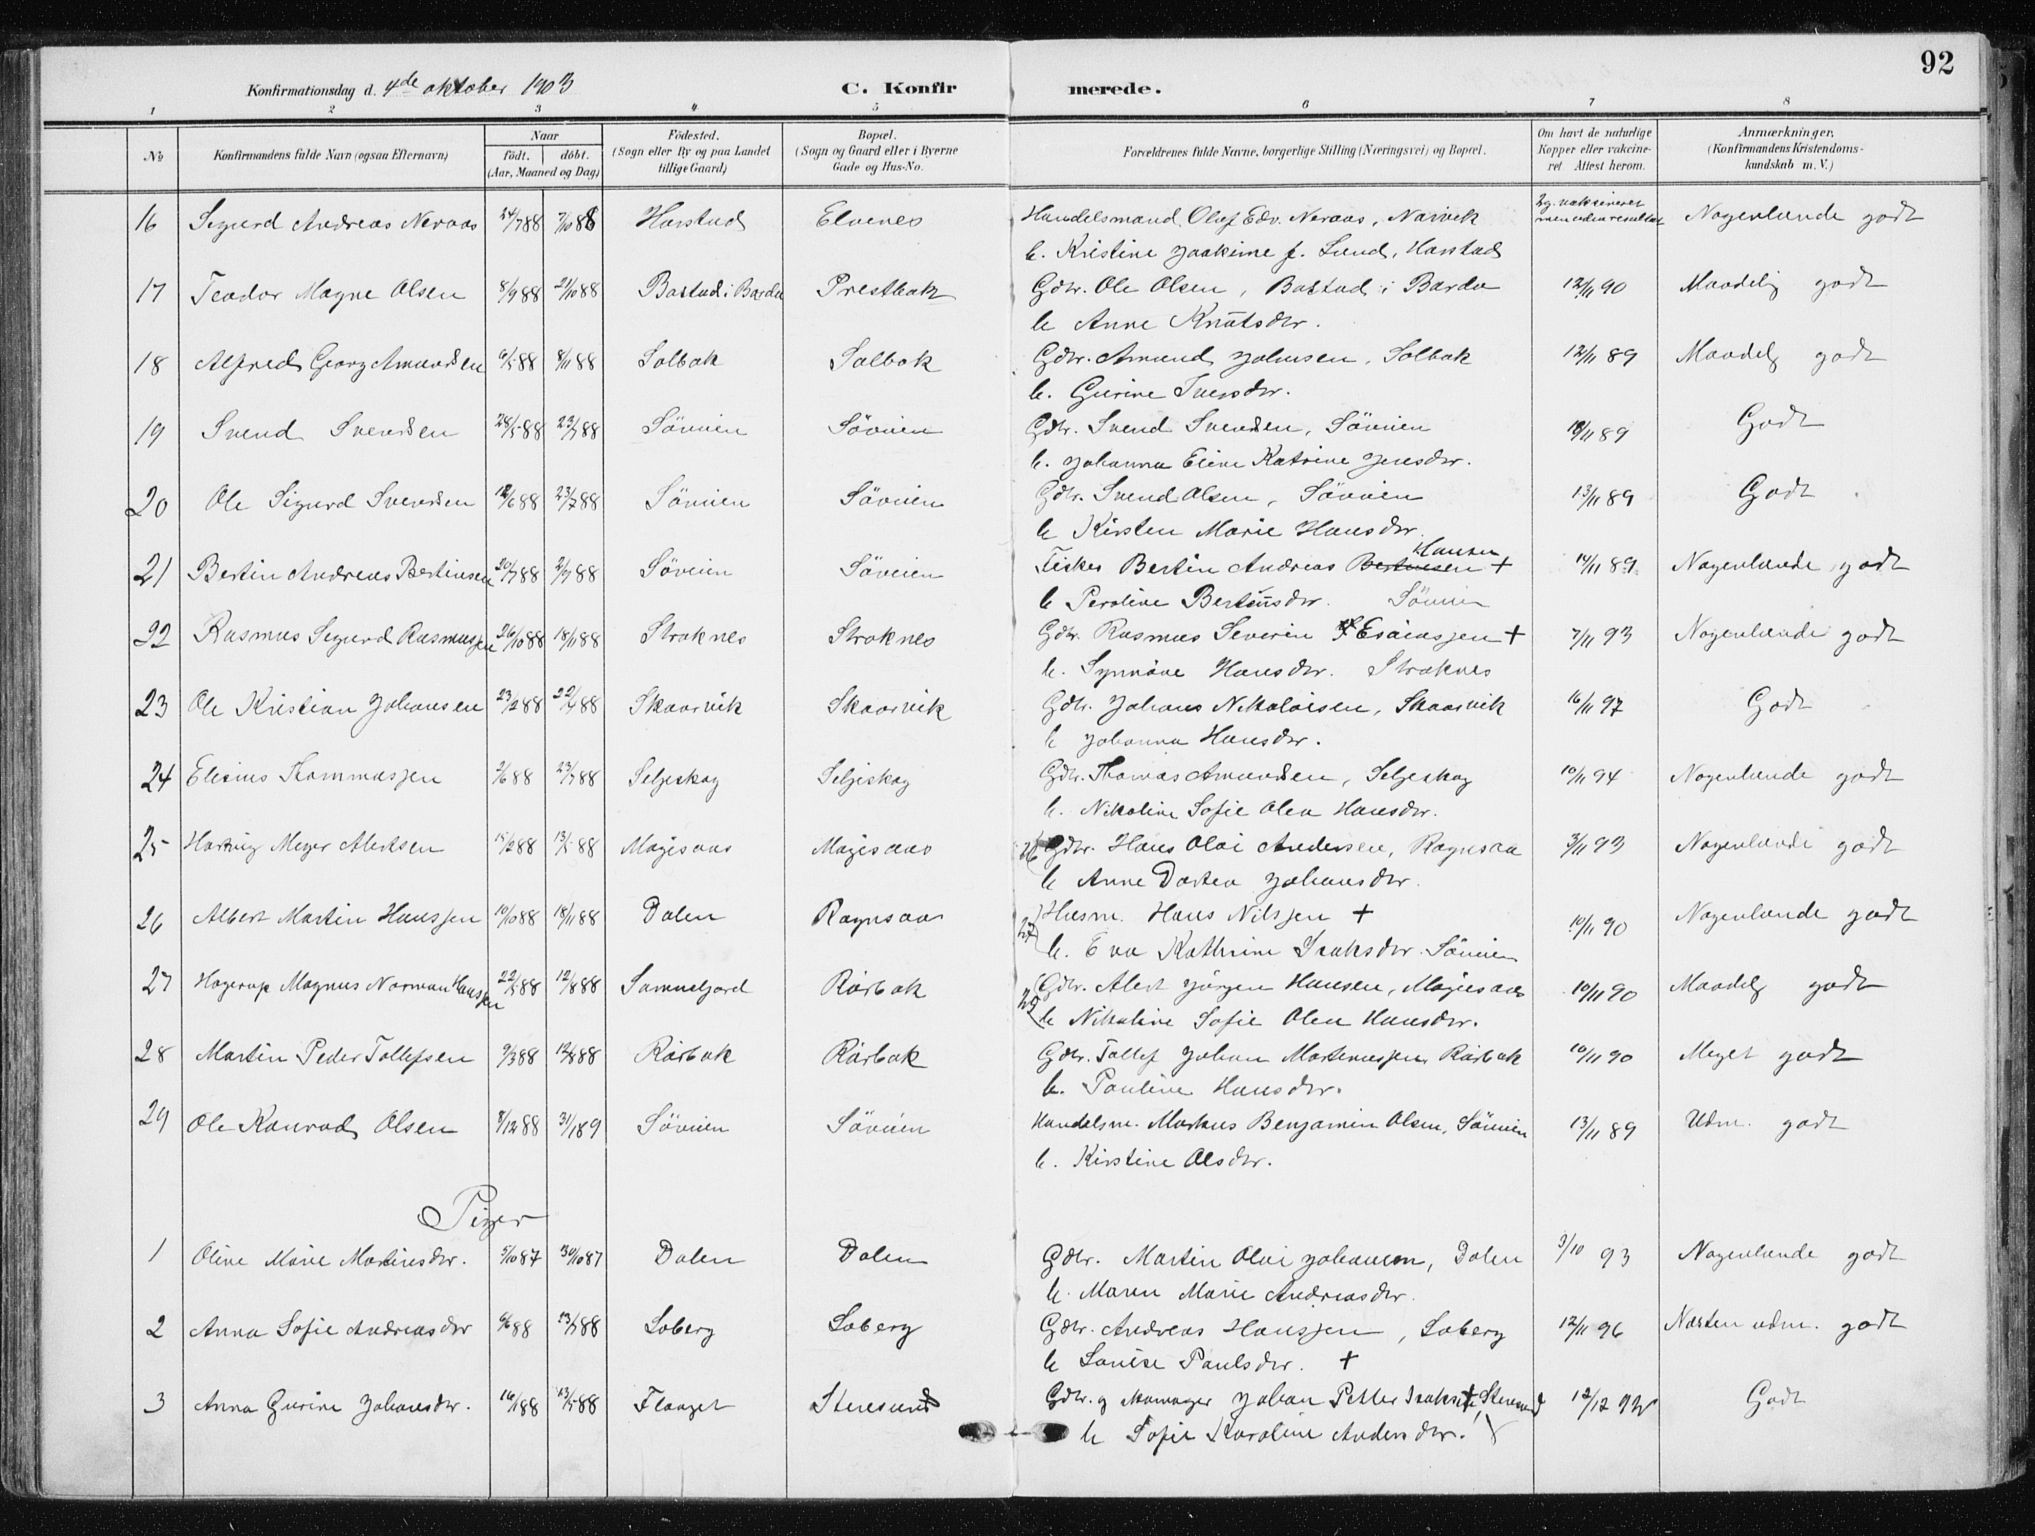 92
Konfirmationsdag d. 4de oktober 1903 C. Konfirmerede.
1 2 3 4 5 6 7 8
No Konfirmandens fulde Navn (ogsaa Efternavn) Naar født. døbt. (Aar, Maaned og Dag) Fødested. (Sogn eller By og paa Landet tillige Gaard) Bopæl. (Sogn og Gaard eller i Byerne Gade og Hus-No. Forældrenes fulde Navne, borgerlige Stilling (Næringsvei) og Bopæl. Om havt de naturlige Kopper eller vakcineret. Attest herom. Anmærkninger. (Konfirmandens Kristendomskundskab m. V.)
16 Sigurd Andreas Neraas 24/7 88 7/10 88 Harstad Elvenes Handelsmand Olaf Edv. Neraas, Narvik vaksineret men uden resultat Nogenlunde godt
h. Kristine Joakime f. Lund, Harstad
17 Teodor Magne Olsen 8/9 88 21/10 88 Bastad i Bardu Prestbak Gdbr. Ole Olsen, Bastad i Bardu 12/11 90 Maadelig godt
h Anne Knutsdtr.
18 Alfred Georg Amundsen 6/5 88 8/11 88 Solbak Solbak Gdbr. Amund Johnsen, Solbak 12/11 89 Maadelg godt
h. Gurine Iversdtr.
19 Svend Svendsen 28/5 88 22/7 88 Søveien Søveien Gdbr. Svend Svendsen, Søveien 89 Godt
h. Johanna Eline Katrine Jensdtr.
20 Ole Sigurd Svendsen 12/6 88 23/7 88 Søveien Søveien Gdbr. Svend Olsen, Søveien 13/11 89 Godt
h Kirsten Marie Hansdtr.
21 Bertin Andreas Bertinsen 20/7 88 2/9 88 Søveien Søveien Fisker Bertin Andreas Bertinsen Hansen + 14/11 89 Nogenlunde godt
h Peroline Bertinsdtr. Søveien
22 Rasmus Sigurd Rasmussen 26/10 88 18/11 88 Straknes Straknes Gdbr. Rasmus Severin Esaiassen + 7/11 93 Nogenlunde godt
h. Synnøve Hansdtr. Straknes
23 Ole Kristian Johansen 23/2 88 22/4 88 Skaarvik Skaarvik Gdbr. Johans Nikolaisen, Skaarvik 16/11 97 Godt
h Johanna Hansdtr.
24 Elisius Thommassen 2/6 88 23/7 88 Seljeskog Seljeskog Gdbr. Thomas Amundsen, Seljeskog 10/11 94 Nogenlunde godt
h. Nikoline Sofie Olea Hansdtr.
25 Hartvig Meyer Alertsen 15/2 88 13/5 88 Møgisaas Møgisaas 26 Gdbr. Hans Olai Andersen, Rognsaa 3/11 93 Nogenlunde godt
h Anne Dortea Johansdtr.
26 Albert Martin Hanssen 10/10 88 18/11 88 Dalen Rognsaas 27 Husm. Hans Nilssen + 10/11 90 Nogenlunde godt
h. Eva Kathrine Isaksdtr. Søveien
27 Hagerup Magnus Norman Hanssen 22/5 88 12/8 88 Rørbak 25 Gdbr. Alert Jørgen Hansen, Møgisaas 10/11 90 Maadelg godt
h Nikoline Sofie Olea Hansdtr.
28 Martin Peder Tollefsen 9/3 88 12/8 88 Rørbak Rørbak Gdbr. Tollef Johan Martinussen, Rørbak 10/11 90 Meget godt
h. Pauline Hansdtr.
29 Ole Konrad Olsen 8/12 88 31/1 89 Søveien Søveien Handelsm. Markus Benjamin Olsen, Søveien 13/11 89 Udm. godt
h. Kirstine Olsdtr.
Piger
1 Oline Marie Martinsdtr. 5/10 87 30/10 87 Dalen Dalen Gdbr. Martin Olai Johansen, Dalen 3/10 93 Nogenlunde godt
h. Maren Marie Andreasdtr.
2 Anna Sofie Andreasdtr 6/6 88 23/7 88 Loberg Loberg Gdbr. Andreas Hanssen, Loberg 12/11 96 Næsten udm. godt
h Louise Paulsdtr. +
3 Anna Gurine Johansdtr. 16/1 88 13/5 88 Flaaget Stenesund Gdbr. og Johan Petter Isaksen + Stenesund 12/12 92 Godt
h Sofie Karoline Andersdtr.